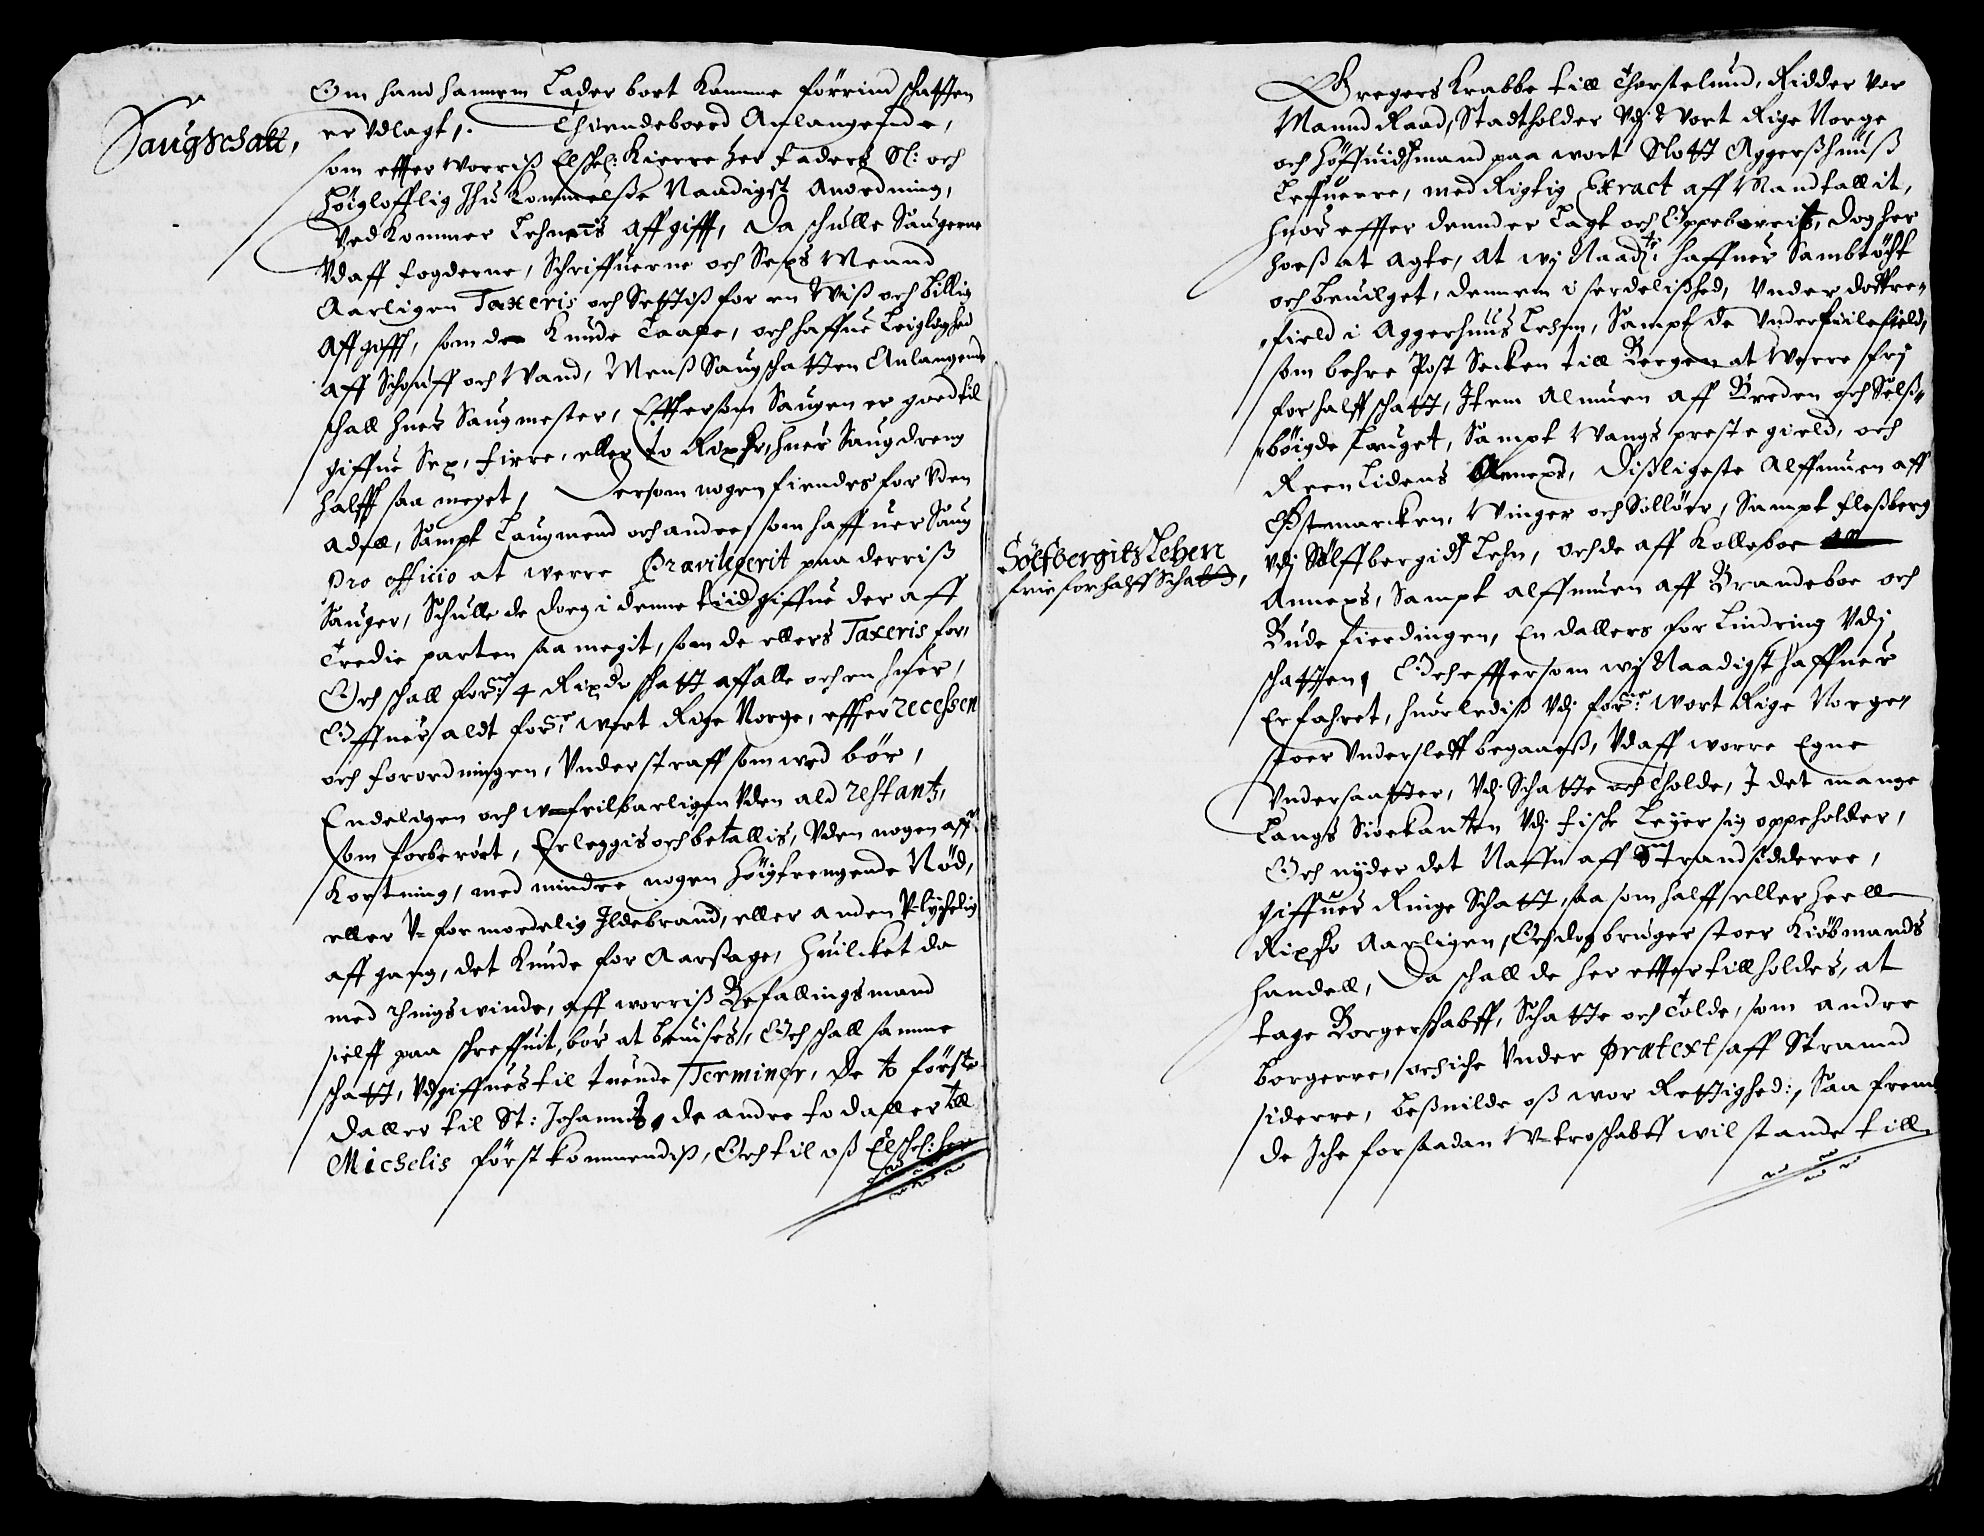 Saugschatt,
Om hand hannem Lader bort Komme förrind schatten
er Vdlagt,. Thiendeboerd Anlangende,
som effter Worriß Elschel: Kierre Her Faders Sl: och
höigloflig Ihu Kommelße Naadigst Anordning,
Ved Kommer Lehnens Aff gifft, Da schulle Saugerne
Vdaff fogderne, Schriffuerne och Sexs Meand
Aarligen Taxeris och Settiß for en Wiß och billig
Aff gifft, som de Kunde Taale, och haffue Leiglighed
aff Schouff och Vand, Menß Saugschatten Anlangende
schall huer Saugmester, Effthersom Saugen er goed til
giffue Sex, fiere, eller to Rixdr, huer Saugdreng
halff saa meget, Dersom nogen findes for Vden
Adell, Sampt Laugmend och andre, som haffuer Saug
pro officio at werre Prævilegerit paa derriß
Sauger, Schulle de doeg i denne tiid giffue der aff
Tredie parten saa megit, som de ellers Taxeris for,
Och schall forne 4 Rixdr schatt aff alle och en huer,
Offuer aldt forne wort Rige Norge, effter recessen
och forordningen, Vnder straff som wed bör,
Endeligen och w-feilbarligen Vden ald restantz,
som forberört, Erleggis och betallis, Vden nogen aff
Kortning, med mindre nogen höigtrengende Nöd,
eller V-formoedelig Ildebrand, eller anden Plydtzelig
aff gang, det Kunde for Aarsage, Huilcket da
med thingswinde, aff worriß Befallingsmand
sielff paa schreffuit, bör at beuises, Och schall samme
schatt, Vdgiffues til tuende Terminer, De to förste
Daller til St: Johannis, de andre to daller till
Michelis först kommendiß, Och til oß Elschel: her
Sölfbergitz Lehen
frie for halff Schatt,
Gregers Krabbe till Thorstelund, Ridder Vor
Mannd Raad, Stadtholder Vdj Vort Rige Norge
och Höffuidzmand paa wort Slott Aggerßhuuß
Leffuerre, med Rigtig Exract aff Mandtallit,
huor effter dennd er Lagt och Oppebereitz, dog her
hoeß at agte, at wj Naadst: haffuer Sambtöcht
och beuilget, dennem i serdelißhed, Vnder doffre,,
,,field i Aggerhuus Lehn, Sampt de Vnder filefield,
som behre Post Secken till Bergen at Werre frj
for halff schatt, Item Almuen aff Breden och Selß,,
,,böigde Lauget, Sampt Vangs preste gield, och
Reenlidens Annexs, Dißligeste Alffmuen aff
Ostmarcken, Vinger och Sollöer, Sampt Fleßberg
Vdj Sölffbergidtz Lehn, och de aff Kolleboe
Annexs, Sampt alffmuen aff Brandeboe och
Bude fierdingen, En dallers for Lindring Vdj
schatten, Och effthersom wj Naadigst haffuer
Erfahret, huorlediß Vdj forne: wort Rige Norge,,
stoer Vndersleff begaaeß, Vdaff worre Egne
Vndersaatter, Vdj Schatte och Tholde, I det mange
Langs Siøekanten Vdj fische Leyer sig oppeholder,
Och nyder det Naffn aff Strandsidderre,
giffues Ringe Schatt, saa som halff eller heell
Rixdr Aarligen, Och dog bruger stoer Kiöbmands
handell, Da schall de her effter tillholdes, at
tage Borgerschabff, Schatte och Tolde, som andre
borgerre, och iche Vnder prætext aff Strannd
siderre, beßnilde oß wor Rettighed:, Saa frembt
de Iche for saadan W-troschabff wil stande till